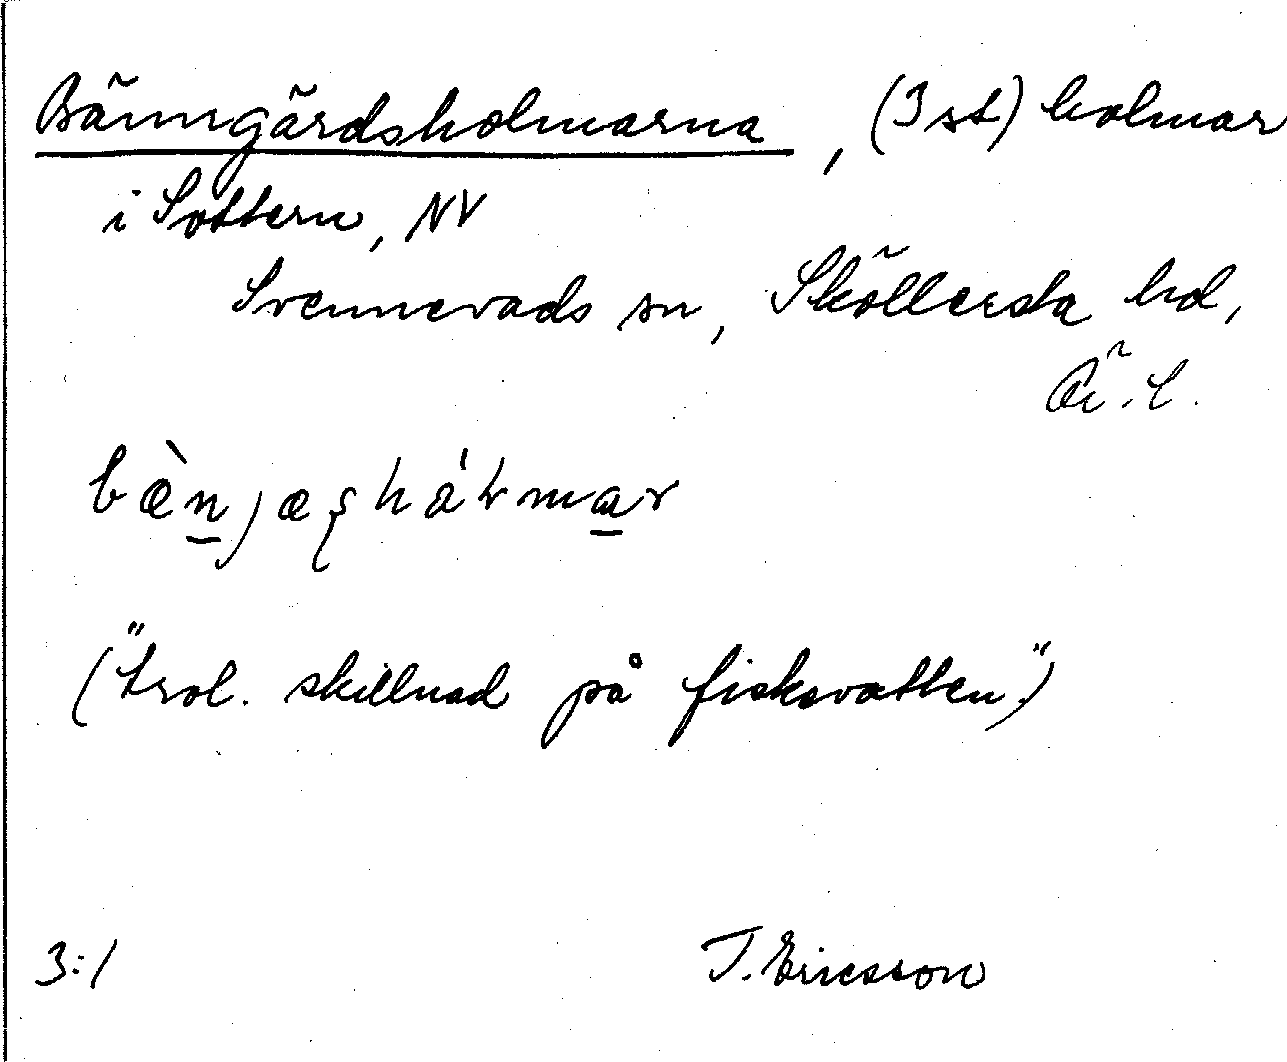 Bänngärdsholmarna, (3 st) holmar
i Sottern, NV
Svennevads sn, Sköllersta hd,
Ö.l.
(”trol. skillnad på fiskevatten”)
3:1 T. Ericsson